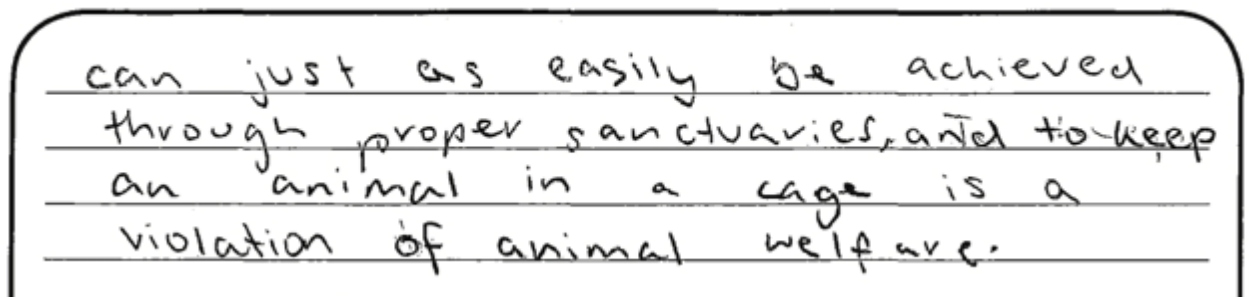 can just as easily be achieved
through proper sanctuaries, and to keep
an animal in a cage is a
violation of animal welfare.